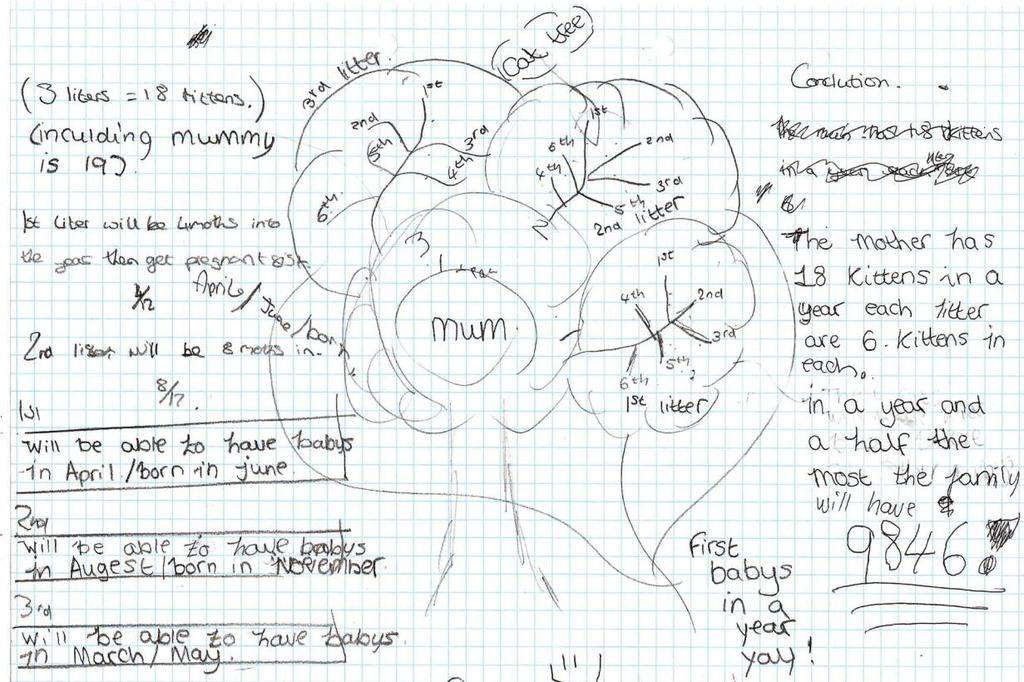 (3 liters = 18 kittens.)
(inculding mummy
is 19).
1st liter will be 4moths into
the year then get pregnant
4/12
April/June/born
2nd litter will be 8 moths in.
8/12.
1st
will be able to have babys
in April./born in june.
2nd
will be able to have babys
in Augest/born in November.
3rd
will be able to have babys.
in March/May.
Cat tree
3rd litter.
1st
2nd
3rd
4th
5th
6th
3
1st
2nd
3rd
4th
5th
6th
2nd litter
2
mum
1st
2nd
3rd
4th
5th
6th
1st litter
First
babys
in a
year
yay!
Conclution.
The mother has
18 kittens in a
year each litter
are 6. kittens in
each.
in a year and
a half the
most the family
will have
9846!